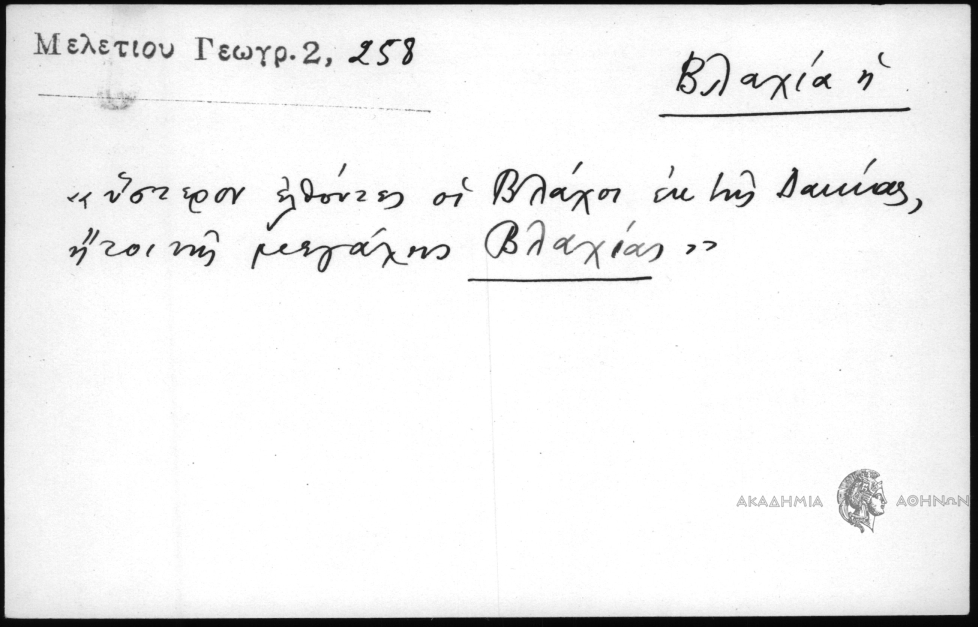 Μελετίου Γεωγρ. 2, 258
Βλαχία ἡ
«ὕστερον ἐλθόντες οἱ Βλάχοι ἐκ τῆς Δακίας,
ἤτοι τῆς μεγάλης Βλαχίας»
ΑΚΑΔΗΜΙΑ ΑΘΗΝΩΝ